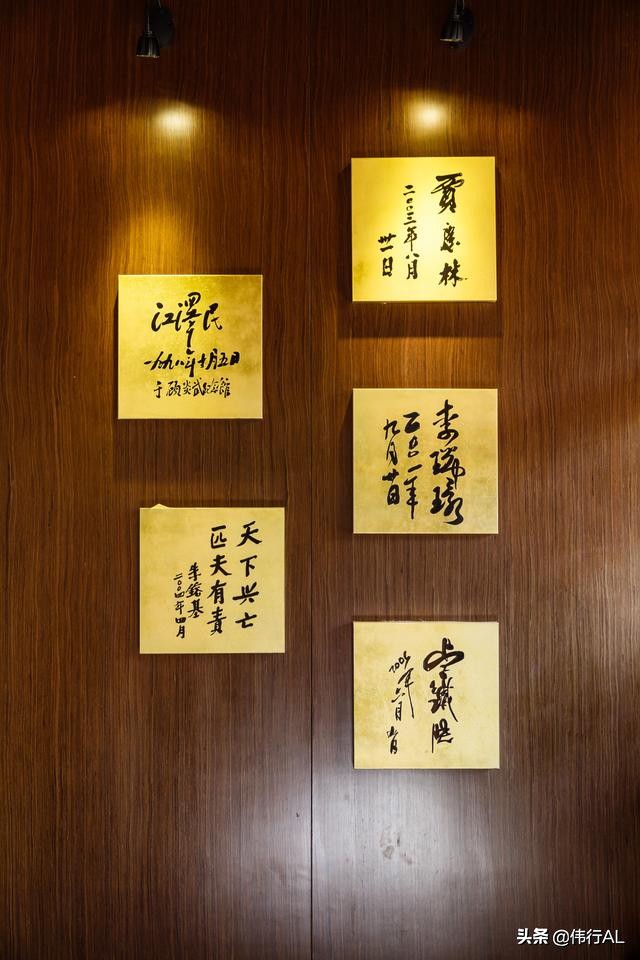 江澤民
一九九八年十月五日
于顾炎武纪念館
天下兴亡
匹夫有责
朱鎔基
二〇〇四年四月
贾庆林
二〇〇三年八月
卅一日
李瑞環
二〇〇一年
九月廿日
鐵映
年六月
头条 @伟行AL